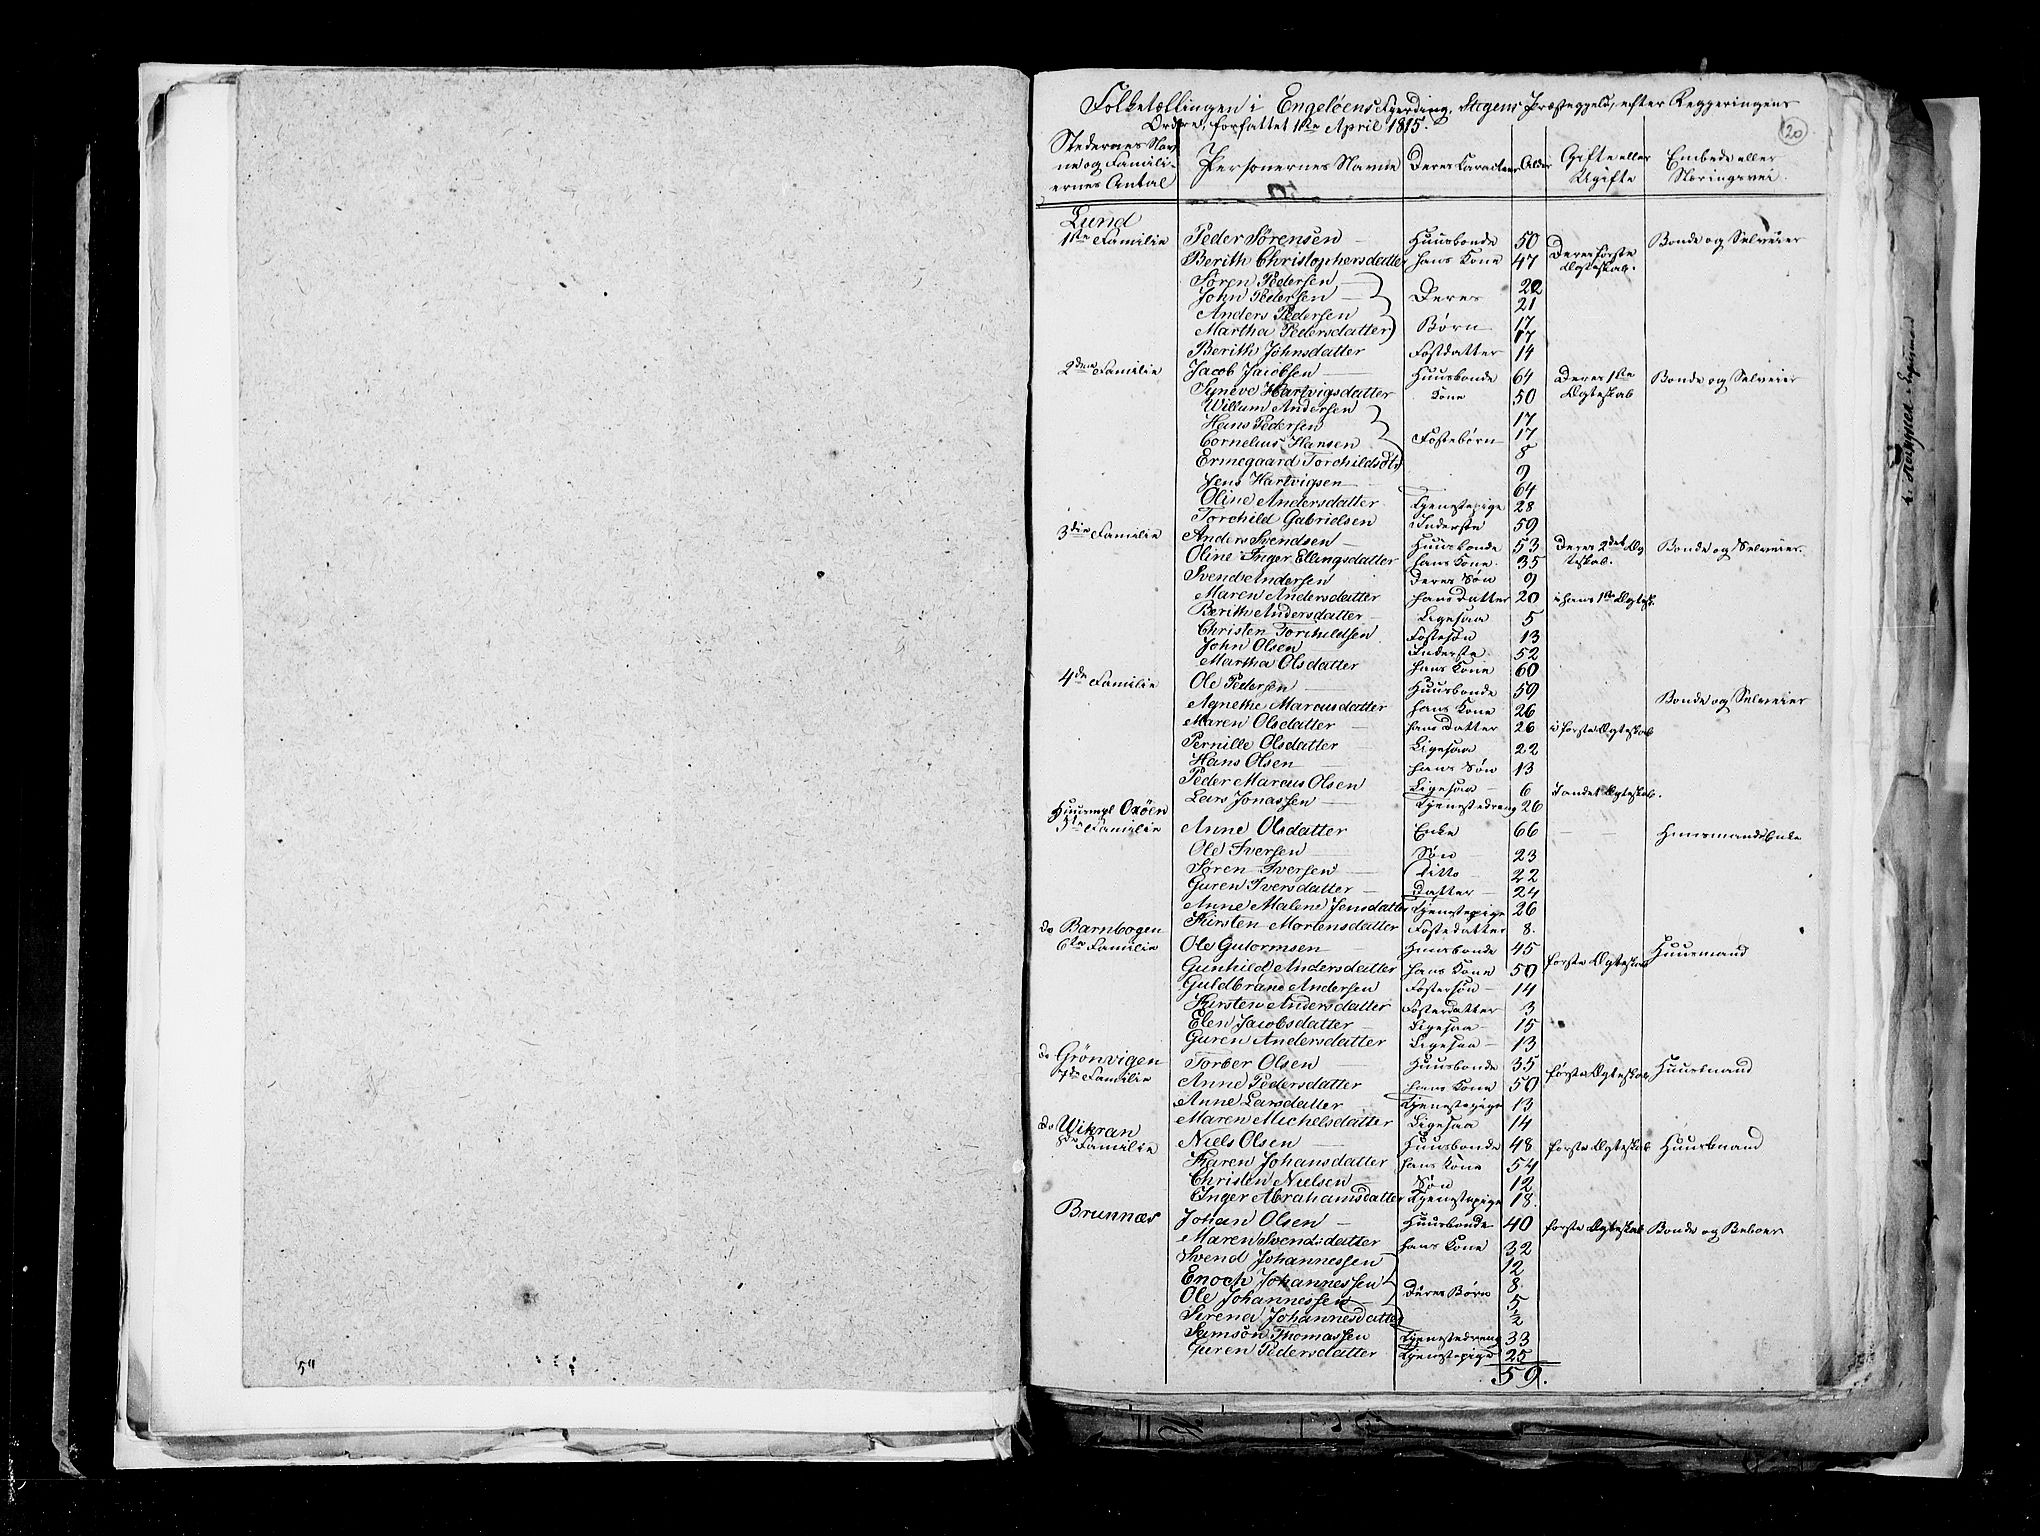 Folketællingen i Engelöens Fjerding, Stegens Præstegjeld, efter Regjeringens
Ordre, forfattet 1ste April 1815.
20
Stedernes Nav-
ne og Famili-
ernes Antal
Personernes Navne
Deres Karacteer
Alder
Gifte eller
Ugifte
Embede eller
Næringsvei.
Lund
1ste Familie Peder Sörensen Huusbonde 50 Deres første Bonde og Selveier
Berith Christophersdatter hans Kone 47 Ægteskab.
Sören Pedersen 22
John Pedersen Deres 21
Anders Pedersen 17
Martha Pedersdatter Børn 17
Berith Johnsdatter Fostdatter 14
2den Familie Jacob Jacobsen Huusbonde 64 Deres 1ste Bonde og Selveier
Syneve Hartvigsdatter Kone 50 Ægteskab
Willum Andersen 17
Hans Pedersen 17
Cornelius Hansen Fostebørn 8
Ermegaard Torchildsdt. 9
Jens Hartvigsen 64
Oline Andersdatter Tjenestepige 28
Torchild Gabrielsen Inderste 59
3die Familie Anders Svendsen Huusbonde 53 Deres 2det Æg Bonde og Selveier.
Oline Inger Ellingsdatter hans Kone. 35 teskab.
Svend Andersen Deres Søn 9
Maren Andersdatter hans datter 20 i hans 1ste Ægtesk.
Berith Andersdatter Ligesaa 5
Christen Torchildsen Fostesøn 13
John Olsen Inderste 52
Martha Olsdatter hans Kone 60
4de Familie Ole Pedersen Huusbonde 59 Bonde og Selveier
Agnethe Marcusdatter hans Kone 26
Maren Olsdatter hans datter 26 i første Ægteskab
Pernille Olsdatter Ligesaa 22
Hans Olsen hans Søn 13
Peder Marcus Olsen Ligesaa 6 I andet Ægteskab.
Lars Jonassen Tjenestedreng 26
Huusmpl Oxöen
5te Familie Anne Olsdatter Enke 66 Huusmands Enke
Ole Iversen Søn 23
Sören Iversen Ditto 22
Guren Iversdatter Datter 24
Anne Malene Jensdatter Tjenestepige 26
Kirsten Mortensdatter Fostedatter 8.
do Barnbogen
6te Familie Ole Gutormsen Huusbonde 45 første Ægteskab Huusmand
Gunhild Andersdatter hans Kone 50
Guldbrand Andersen Fostersøn 14
Kirsten Andersdatter Fosterdatter 3
Elen Jacobsdatter Ligesaa 15
Guren Andersdatter Ligesaa 13
do Grönvigen Torber Olsen Huusbonde 35 første Ægteskab Huusmand
7de Familie Anne Pedersdatter hans Kone 50
Anne Larsdatter Tjenestepige 13
Maren Michelsdatter Ligesaa 14
do Wikran
8de Familie Niels Olsen Huusbonde 48 første Ægteskab Huusmand
Karen Johansdatter hans Kone 54
Christen Nielsen Søn 12
Inger Abrahamsdatter Tjenestepige 18.
Brunnæs Johan Olsen Huusbonde 40 første Ægteskab Bonde og Beboer
Maren Svendsdatter hans Kone 32
Svend Johannessen 12
Enoch Johannessen Deres Børn 8.
Ole Johannessen 5
Serena Johannesdatter ½
Samson Thomassen Tjenestedreng 33
Guren Pedersdatter Tjenestepige 25
59.